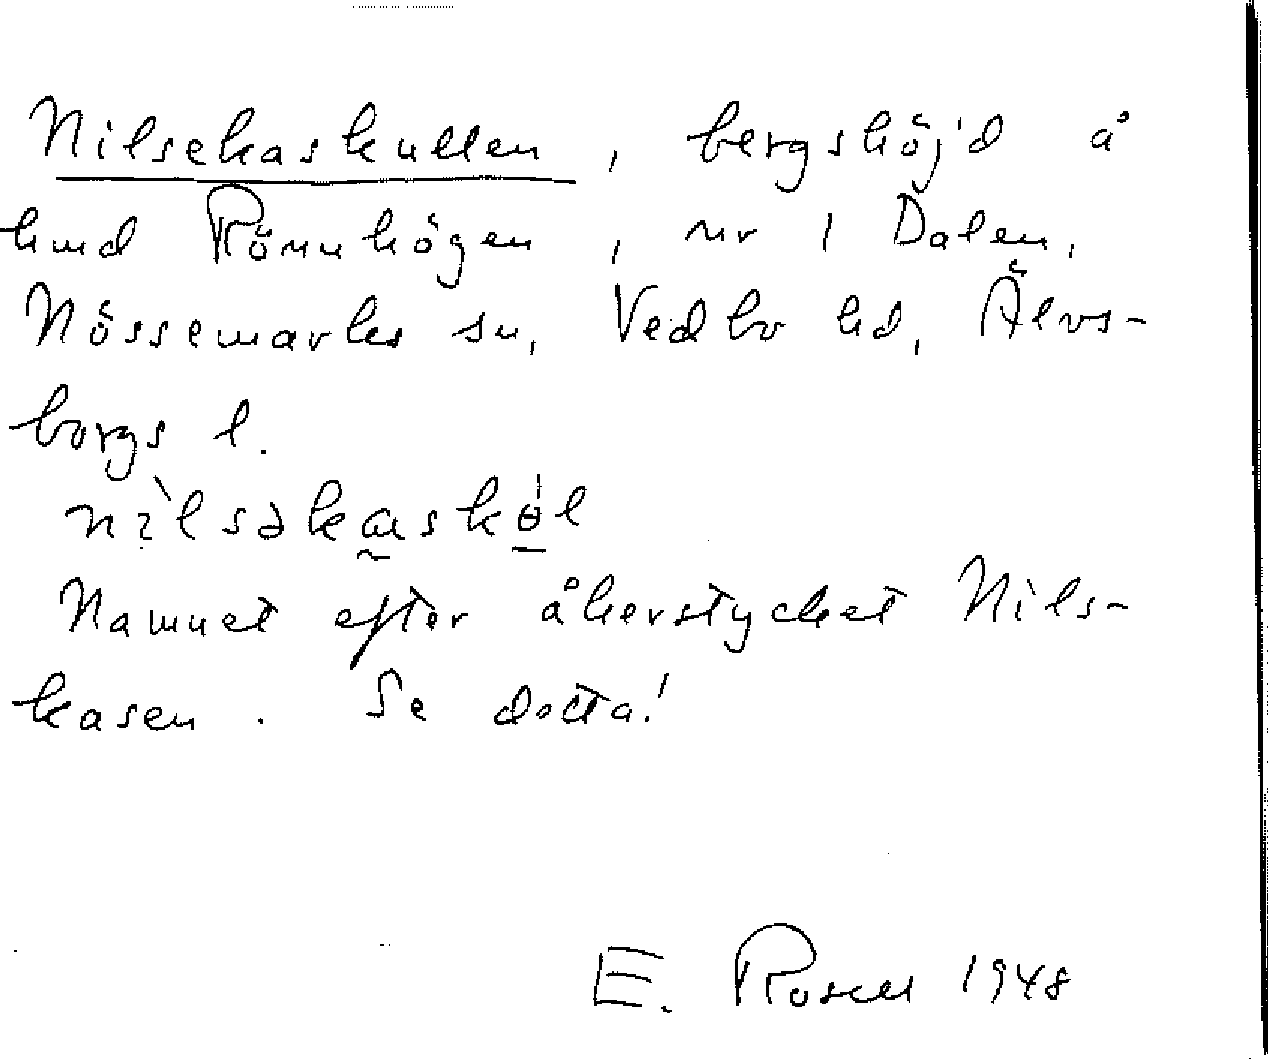 Nilsekaskullen, bergshöjd å
hmd Rönnhögen, nr 1 Dalen,
Nössemarks sn, Vedbo hd, Älvs-
borgs l.
nìlsəkaskɵ́l
Namnet efter åkerstycket Nils-
kasen. Se detta!
E. Rosen 1948